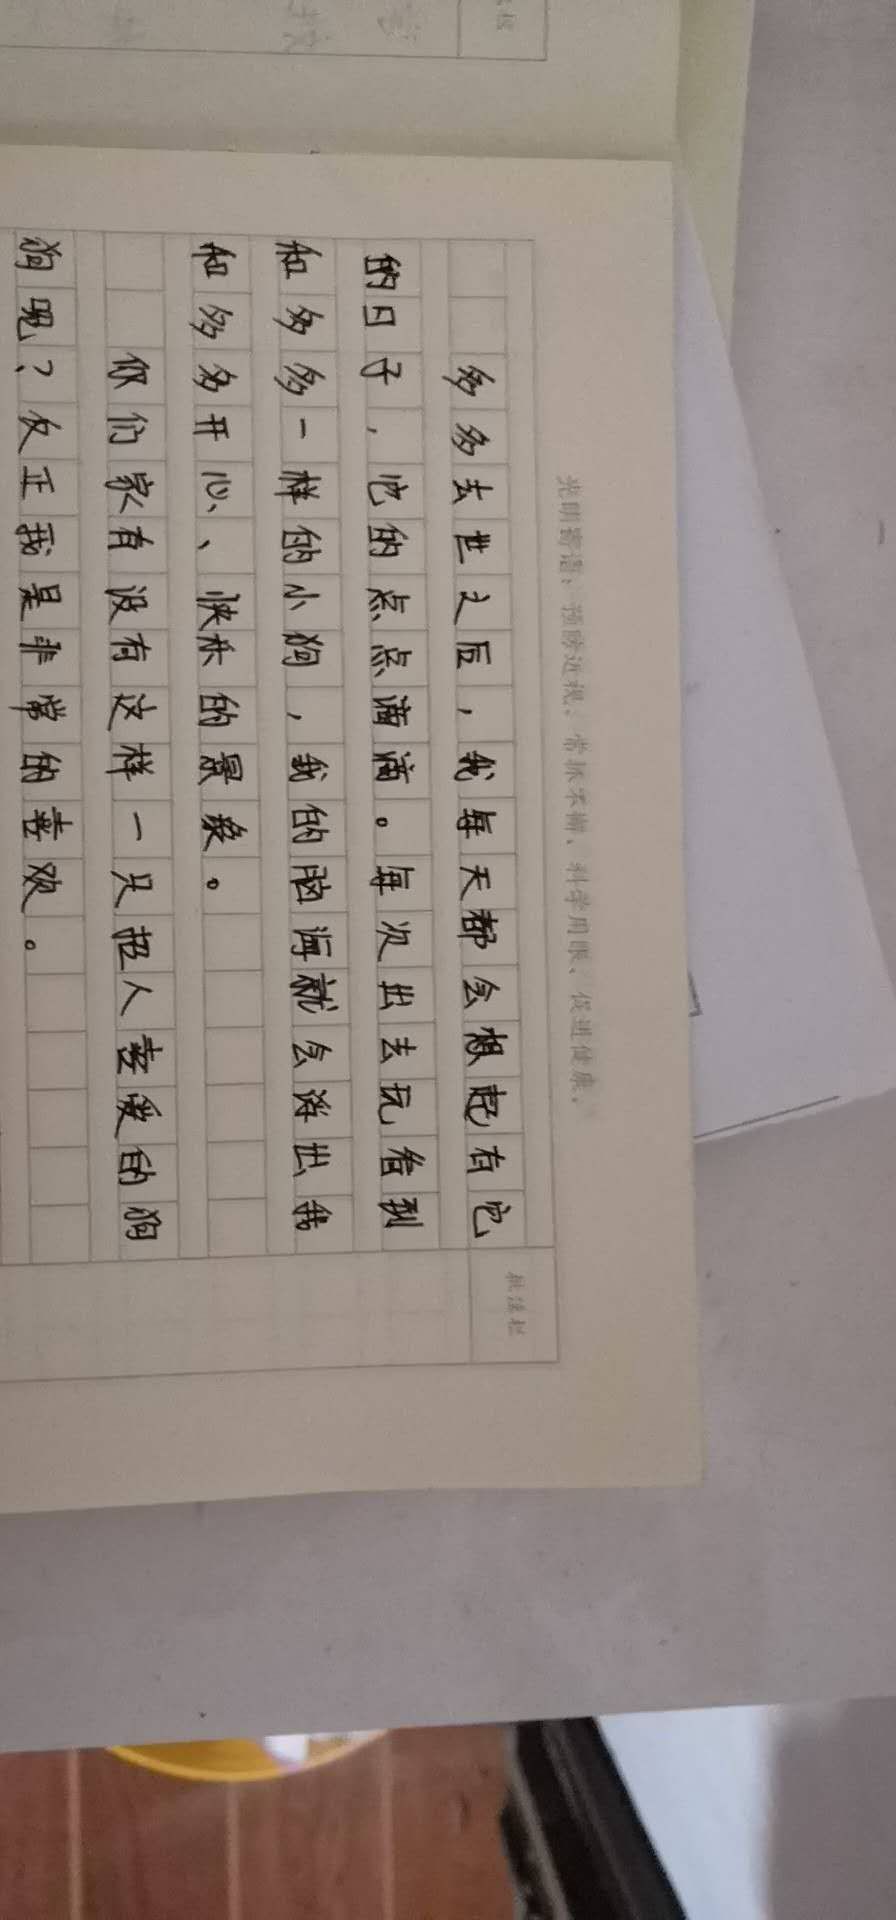 光明寄语：预防近视，常抓不懈，科学用眼，促进健康。
批注栏
多多去世之后，我每天都会想起有它
的日子，它的点点滴滴。每次出去玩看到
和多多一样的小狗，我的脑海就会浮出我
和多多开心、快乐的景象。
你们家有没有这样一只招人喜爱的狗
狗呢？反正我是非常的喜欢。